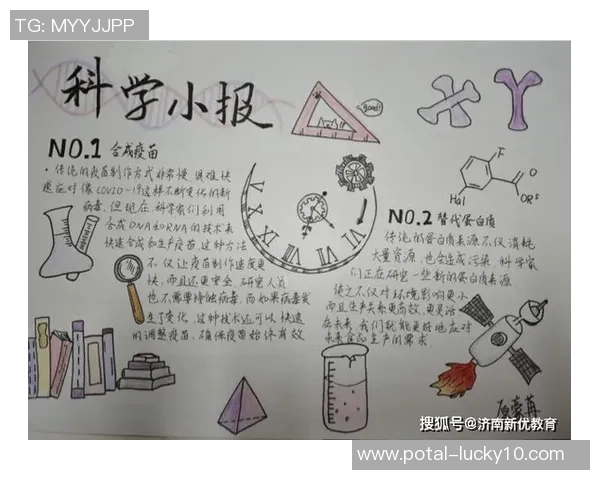 TG: MYYJJPP
科学小报
good!
NO.1 合成疫苗
·传统的疫苗制作方式非常慢 很难快
速应对像COVID-19这样不断变化的新
病毒。但现在,科学家们利用
合成DNA和RNA的技术来
快速合成和生产疫苗,这种方法
不仅让疫苗制作速度更
快,而且还更安全,研究人员
也不需要接触病毒,而如果病毒发
生了变化,这种技术还可以快速
的调整疫苗,确保疫苗始终有效
F
O
Hal
OR⁵
NO.2 替代蛋白质
传统的蛋白质来源不仅消耗
大量资源,也会造成污染 科学家
们正在研究一些新的蛋白质来源
使之不仅对环境影响更小
而且生产关系更高效,更灵活
在未来,我们就能更好地应对
未来食品生产的需求
搜狐号@济南新优教育
www.potal-lucky10.com